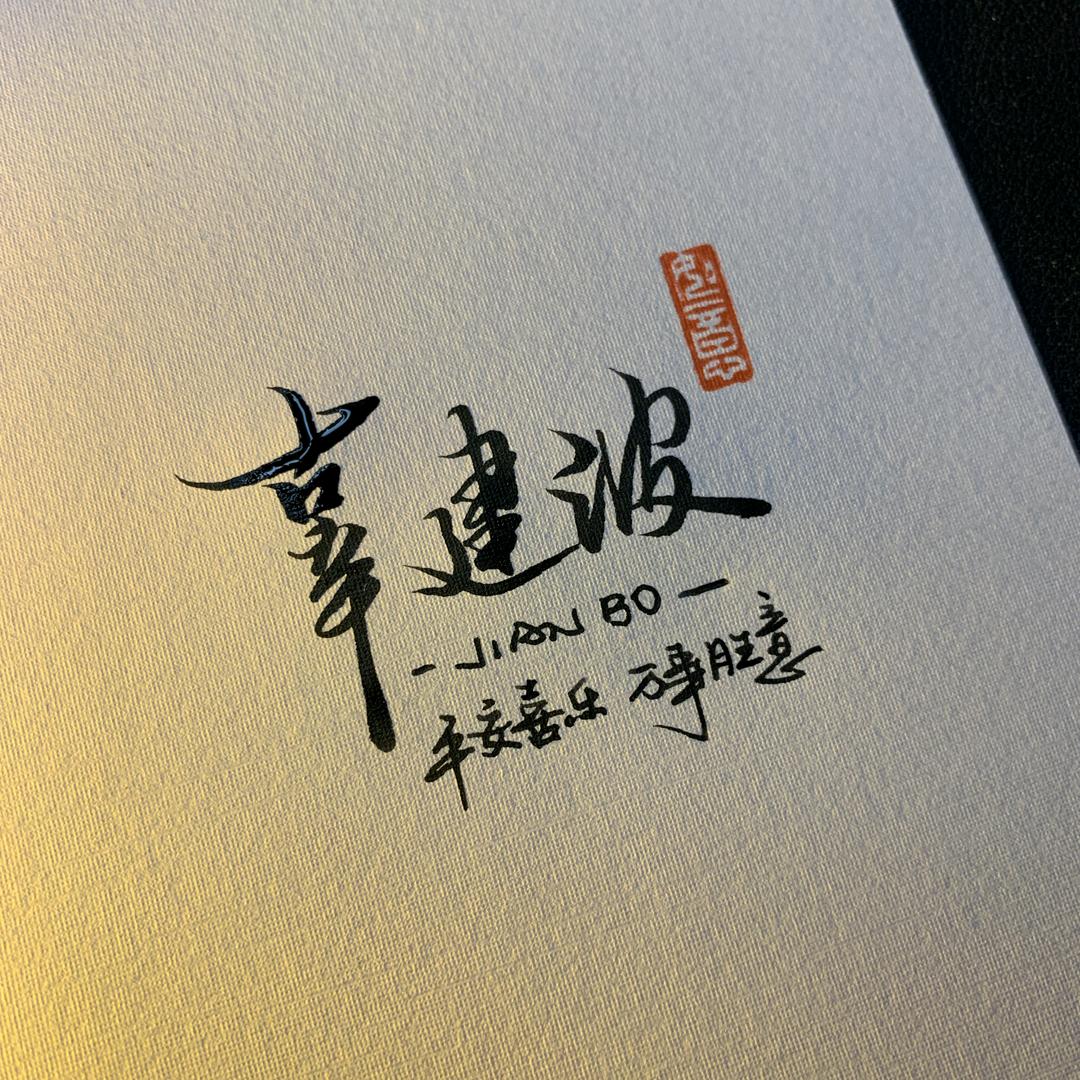 辜建波
- JIAN BO -
平安喜乐 万事胜意